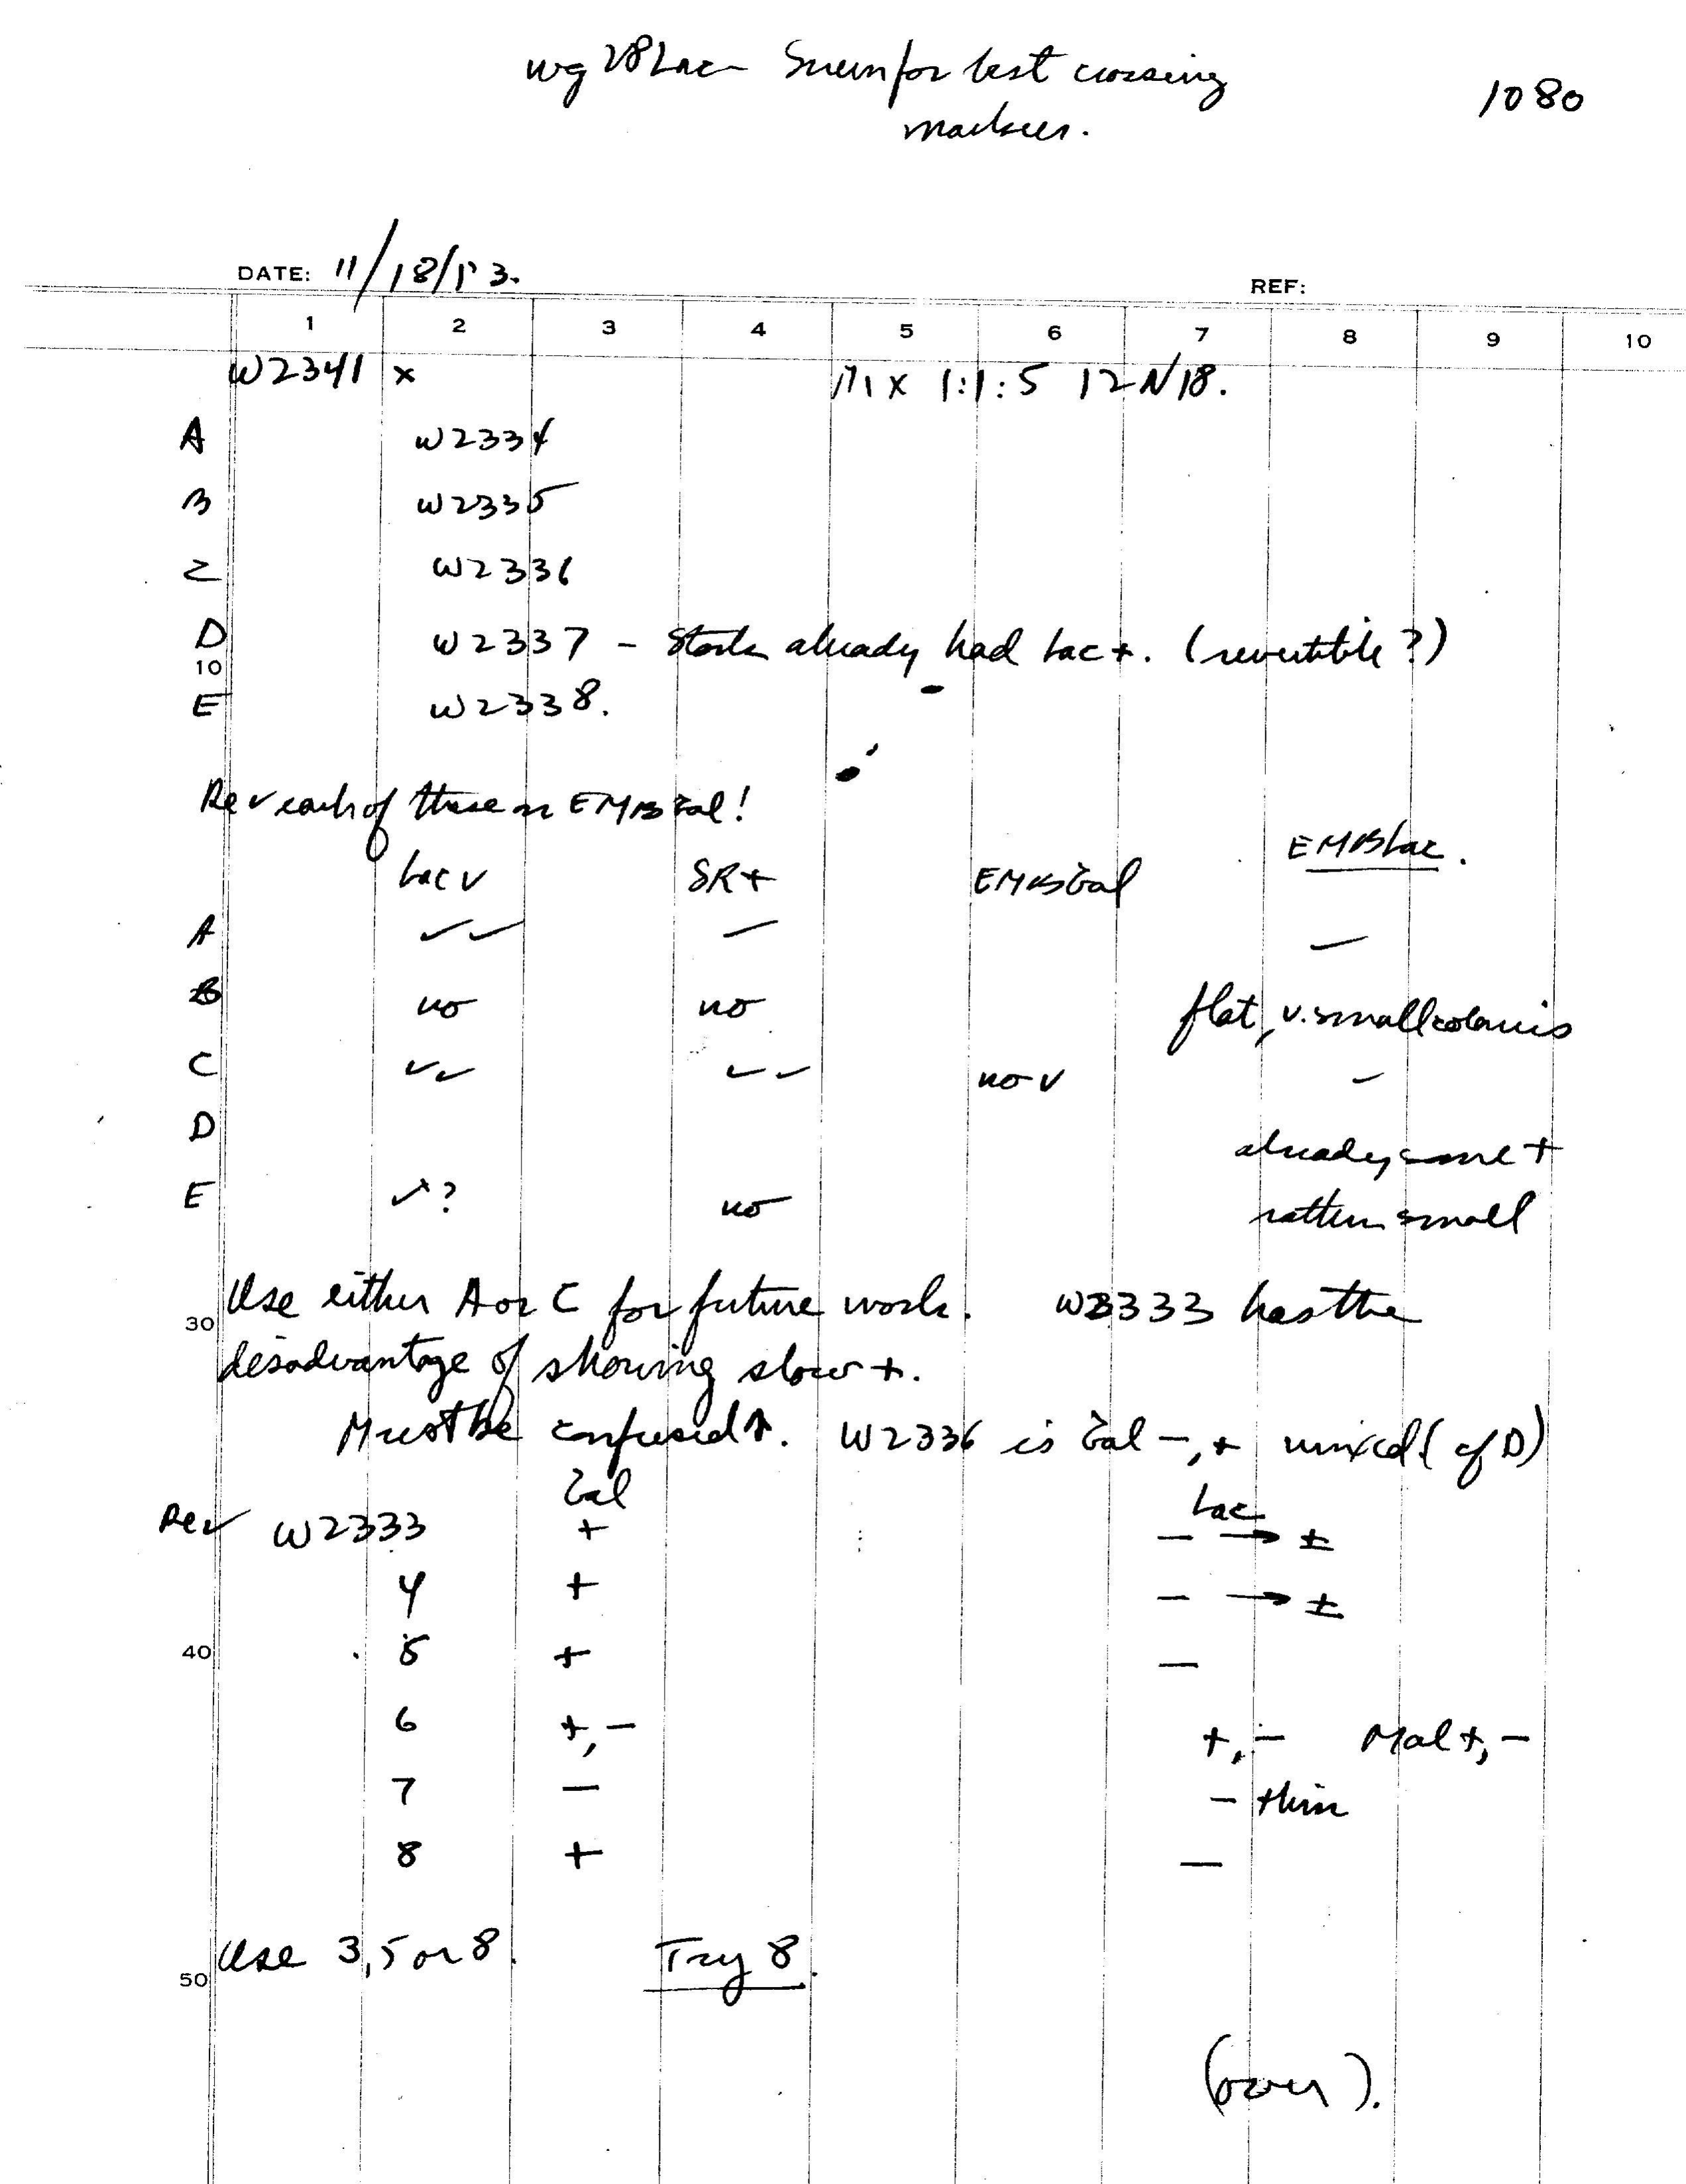 wg 28 Lac- Screen for best crossing
markers.
1080
DATE: 11/18/53.
REF:
1 2 3 4 5 6 7 8 9 10
W2341 x Mix 1:1:5 12 N18.
A W2334
B W2335
C W2336
D W2337 - Stock already had Lac+. (revertible?)
10
E W2338.
each of these on EMB Gal!
Lac v SR+ EMB Gal EMB Lac.
A ✓✓ – –
B no no flat, v. small colonies
C ✓✓ ✓✓ no v –
D already some +
E ✓? no rather small
Use either A or C for future work. W2333 has the
30
disadvantage of showing slow +.
Must be confused↑. W2336 is Gal -,+ mixed (cf D)
Gal Lac
W2333 + – → ±
4 + – → ±
40
5 + –
6 +,- +,- Mal +,-
7 – – thin
8 + –
Use 3,5 or 8. Try 8.
50
(over).